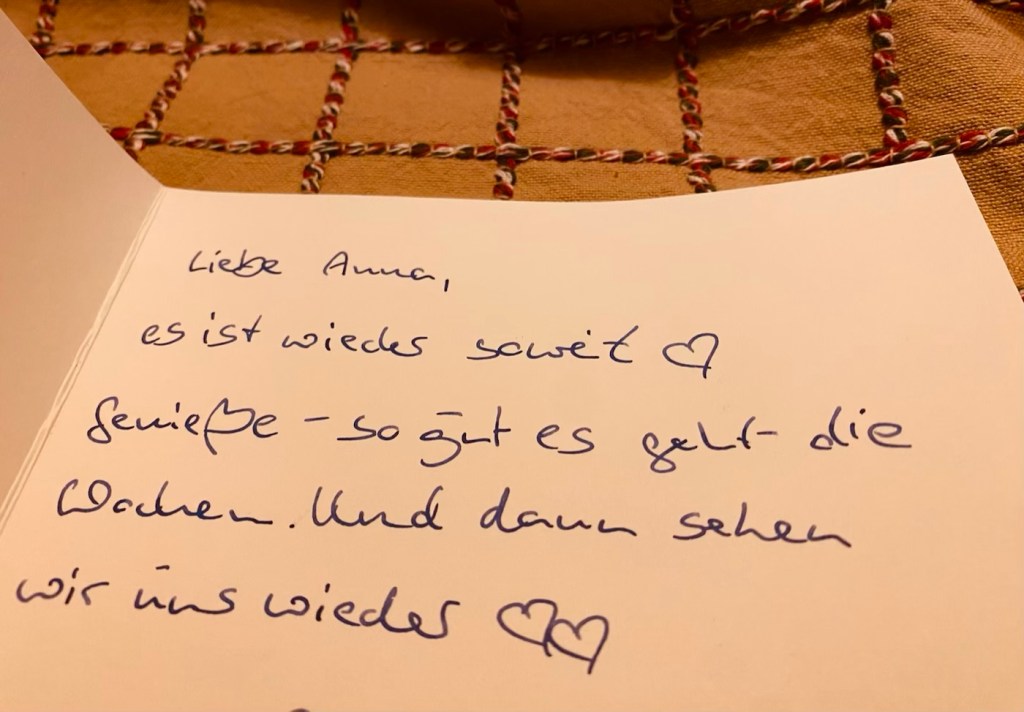 Liebe Anna,
es ist wieder soweit ♡
Genieße – so gut es geht – die
Wochen. Und dann sehen
wir uns wieder ♡♡